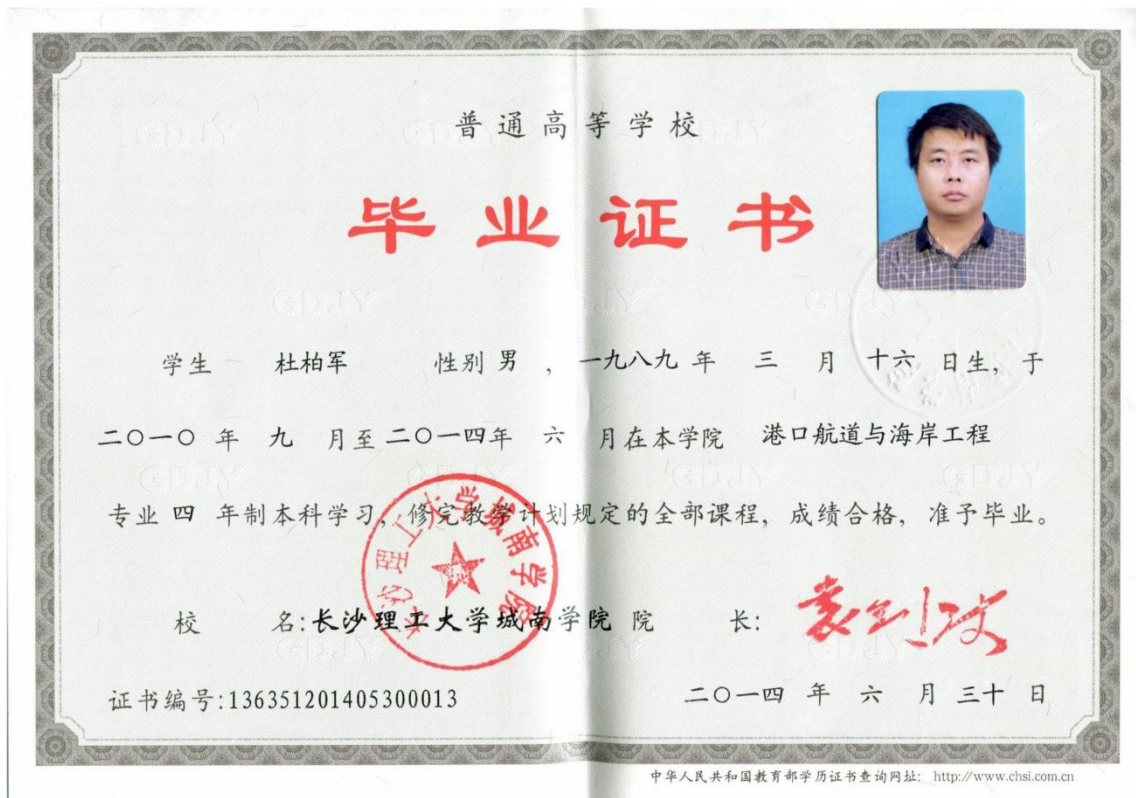 普通高等学校
毕业证书
学生 杜柏军 性别 男 ，一九八九 年 三 月 十六 日生，于
二〇一〇 年 九 月至 二〇一四年 六 月在本学院 港口航道与海岸工程
专业 四 年制本科学习，修完教学计划规定的全部课程，成绩合格，准予毕业。
长沙理工大学城南学院
校 名:长沙理工大学城南学院 院 长:
证书编号:136351201405300013
二〇一四 年 六 月 三十 日
中华人民共和国教育部学历证书查询网址: http://www.chsi.com.cn